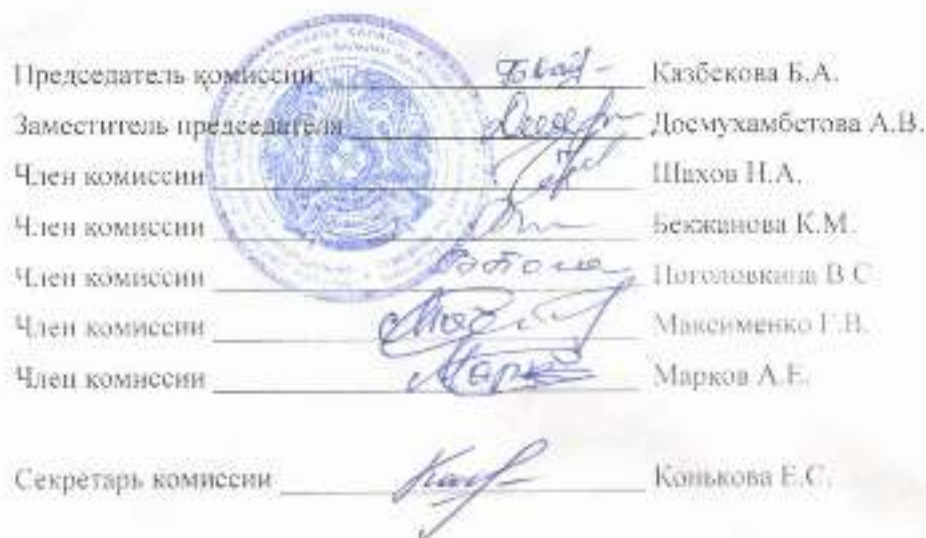 Председатель комиссии Казбекова Б.А.
Заместитель председателя Досмухамбетова А.В.
Член комиссии Шахов Н.А.
Член комиссии Бекжанова К.М.
Член комиссии Поголовкина В.С.
Член комиссии Максименко Г.В.
Член комиссии Марков А.Е.
Секретарь комиссии Конькова Е.С.